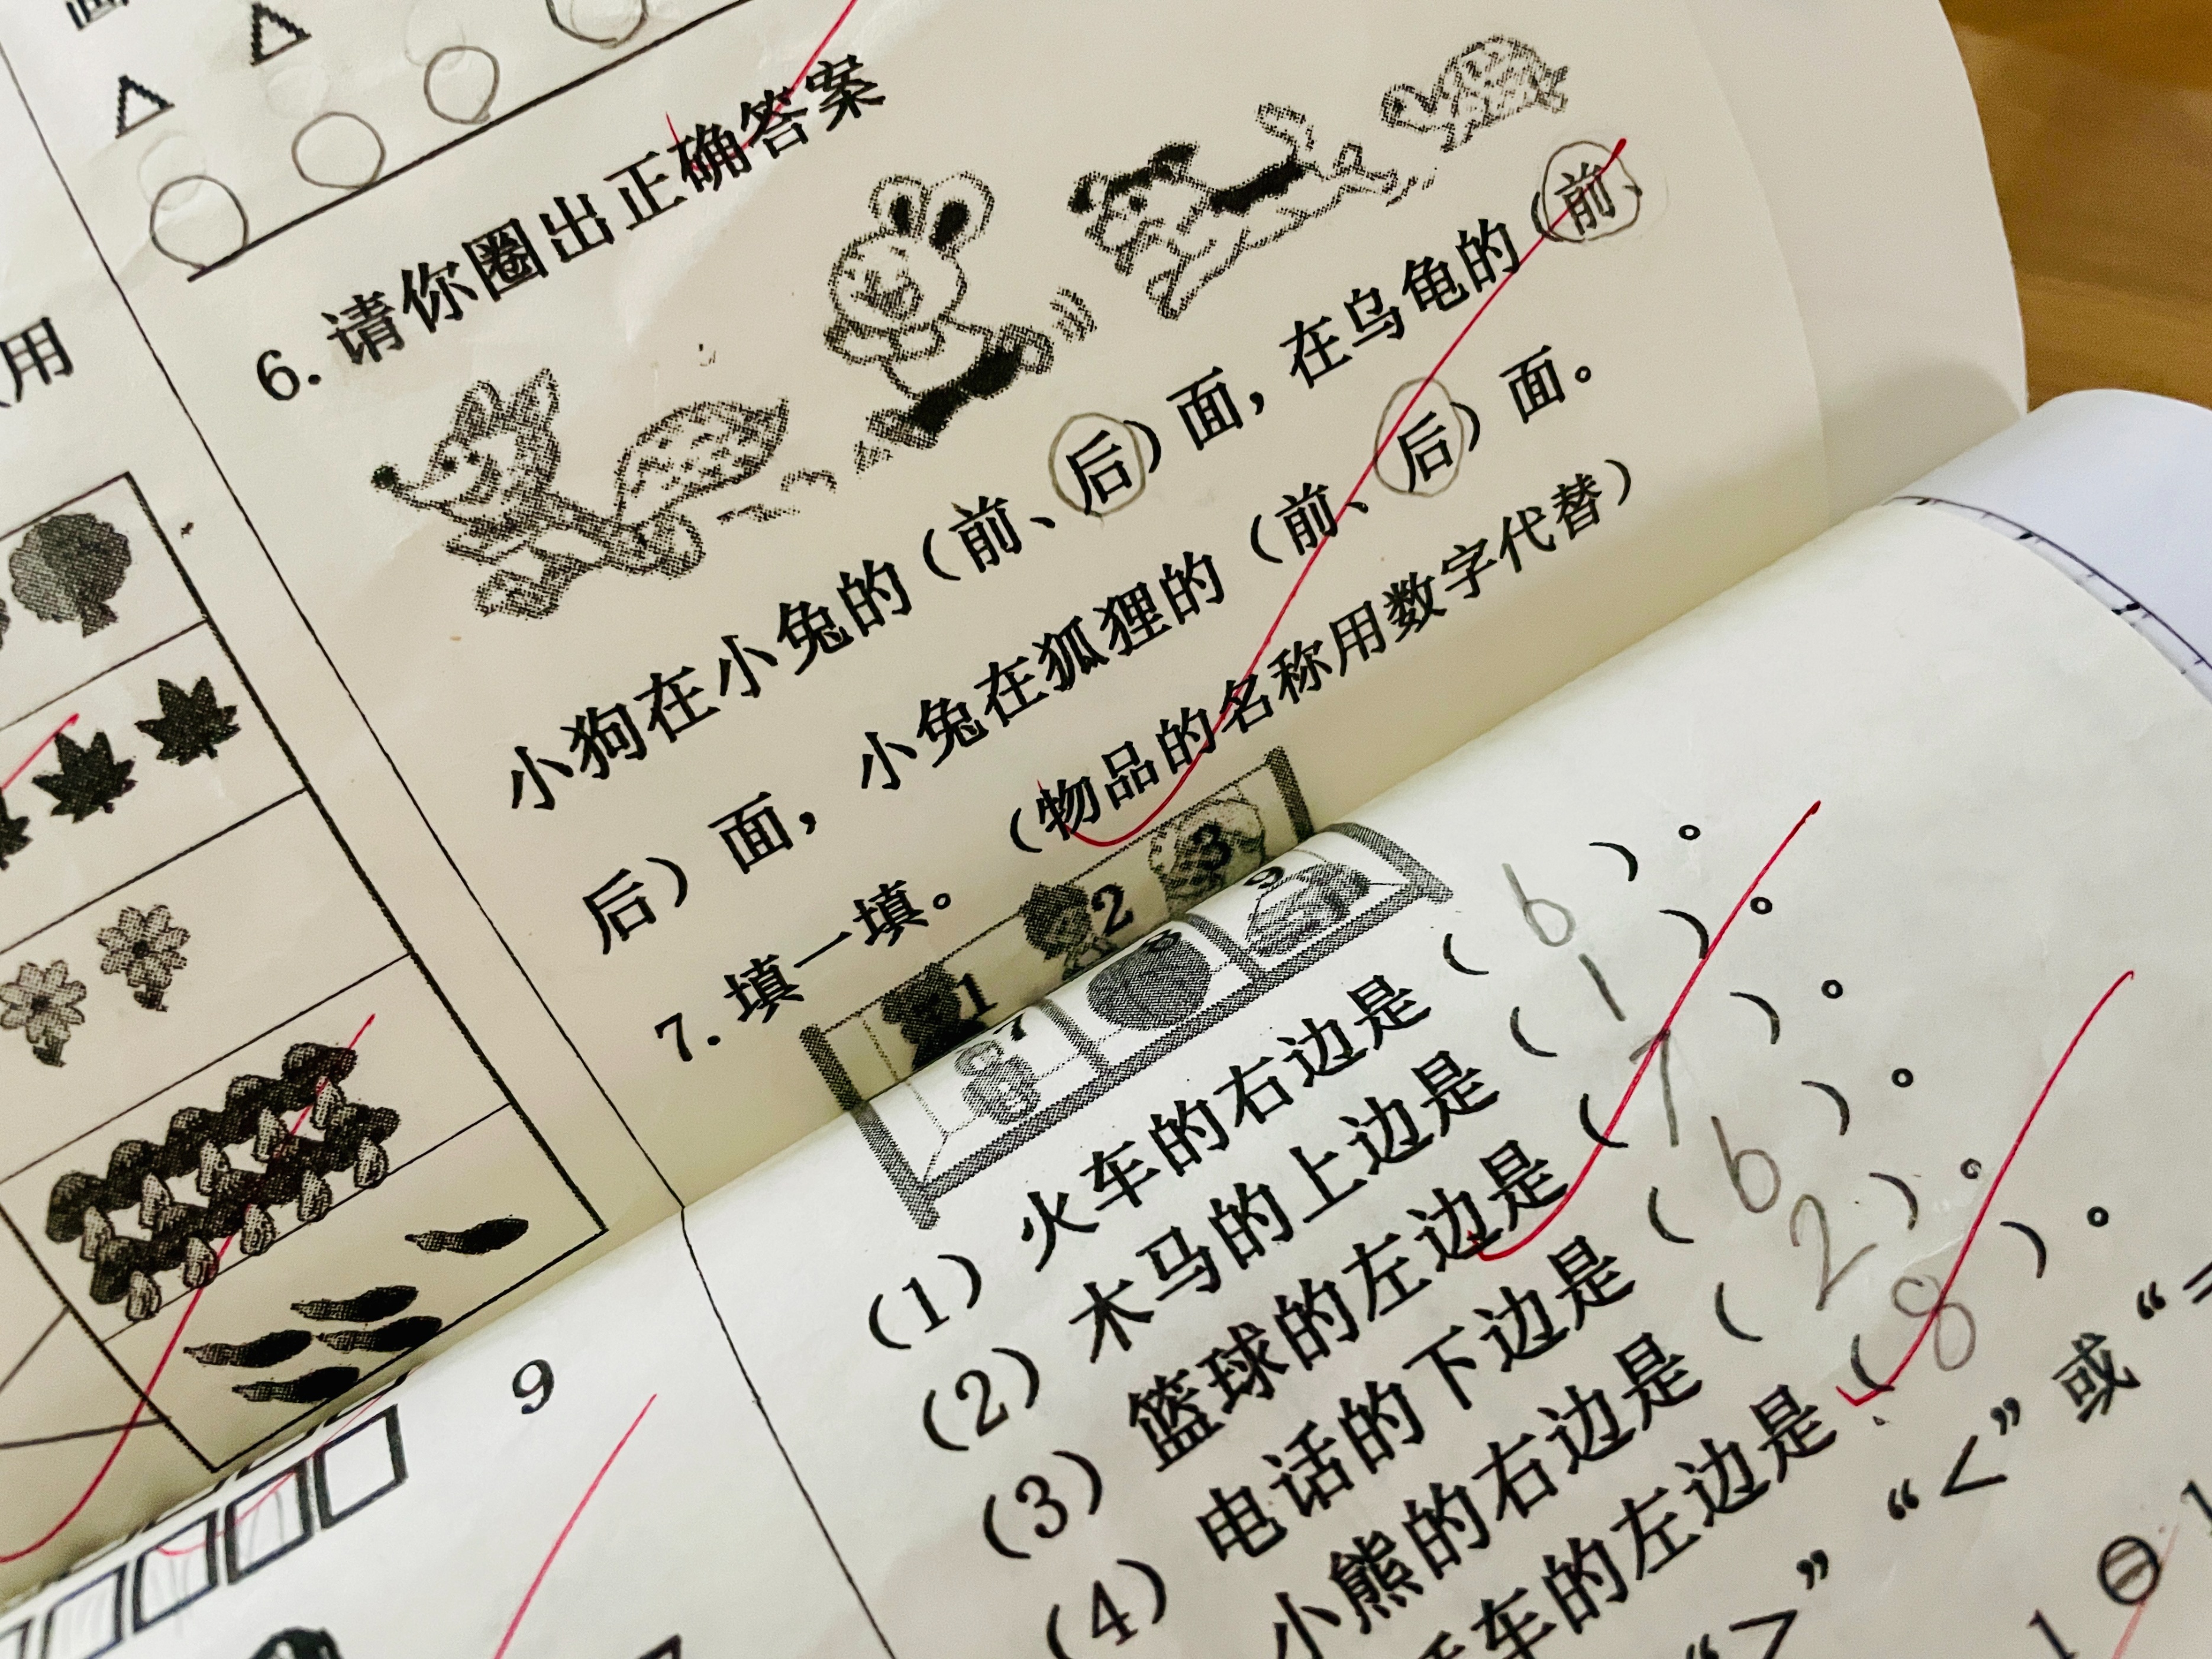 用
6. 请你圈出正确答案
小狗在小兔的（前、后）面，在乌龟的（前、
后）面，小兔在狐狸的（前、后）面。
7. 填一填。（物品的名称用数字代替）
1 2 3
7 8 9
（1）火车的右边是（ 6 ）。
（2）木马的上边是（ 1 ）。
（3）篮球的左边是（ 7 ）。
（4）电话的下边是（ 6 ）。
小熊的右边是（ 2 ）。
车的左边是（ 8 ）。
“＞”“＜”或“＝
9
1
1